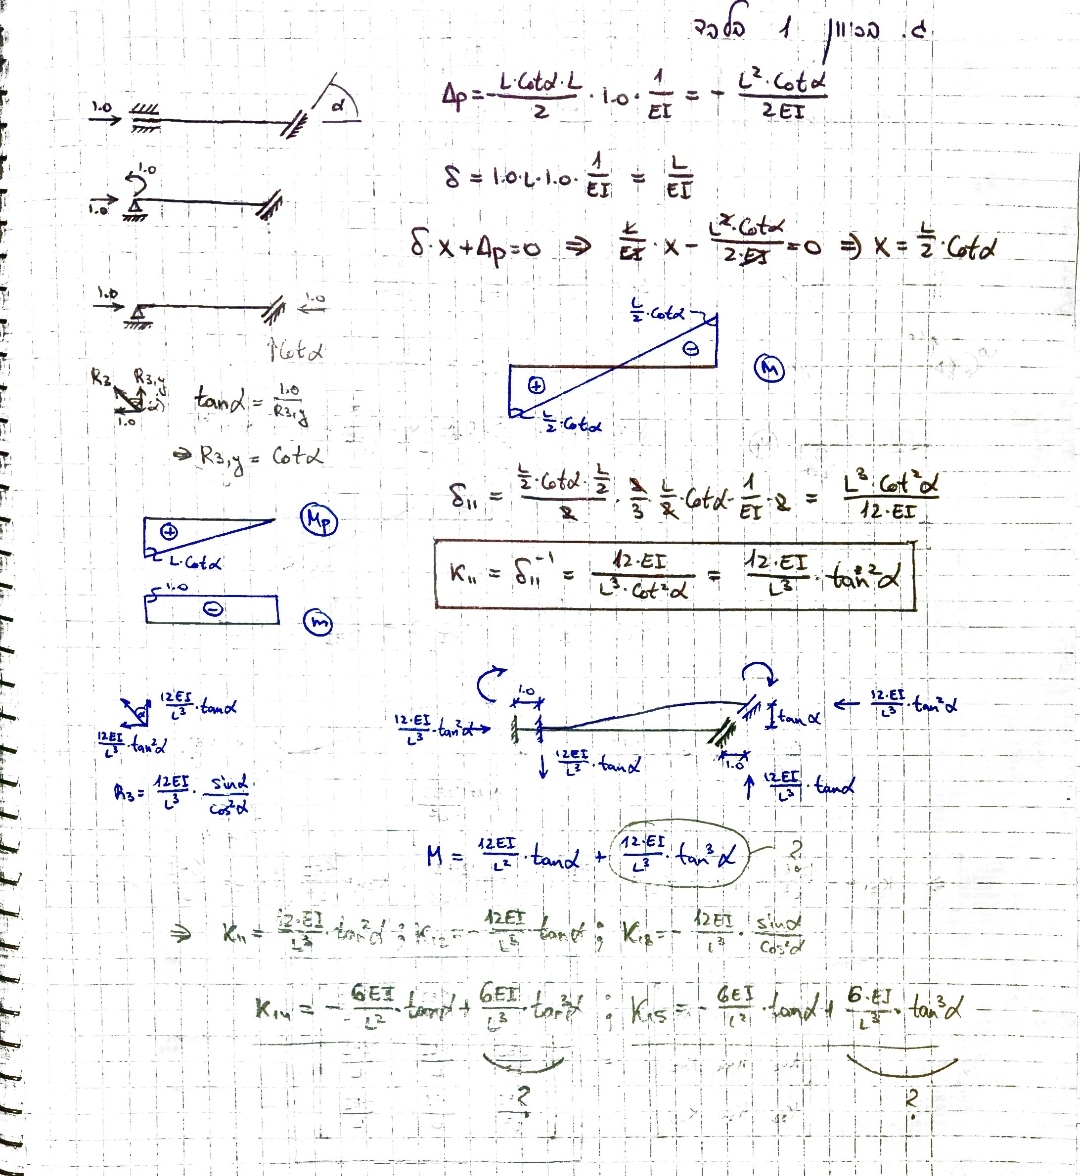 ג. בכיוון 1 בלבד
1.0 α
Δp = - L·Cotα·L/2 · 1.0 · 1/EI = - L²·Cotα/2EI
1.0
1.0
δ = 1.0·L·1.0· 1/EI = L/EI
δ·X + Δp = 0 ⇒ L/EI · X - L²·Cotα/2·EI = 0 ⇒ X = L/2 · Cotα
1.0 1.0
Cotα
L/2·Cotα
⊖
⊕
L/2·Cotα
M
R3 R3,y
α
1.0
tanα = 1.0/R3,y
⇒ R3,y = Cotα
δ11 = L/2·Cotα·L/2 / 2 · 2/3 · L/2 · Cotα · 1/EI · 2 = L³·Cot²α/12·EI
⊕ Mp
L·Cotα
K11 = δ11⁻¹ = 12·EI/L³·Cot²α = 12·EI/L³ · tan²α
1.0
⊖ m
12EI/L³·tanα
α
12EI/L³·tan²α
R3 = 12EI/L³ · sinα/cos²α
1.0
12·EI/L³·tan²α
tanα
12·EI/L³·tan²α
12EI/L³·tanα
1.0
12EI/L³·tanα
M = 12EI/L² · tanα + 12·EI/L³ · tan³α ?
⇒ K11 = 12·EI/L³·tan²α ; K12 = - 12EI/L³ tanα ; K13 = - 12EI/L³ · sinα/cos²α
K14 = - 6EI/L² · tanα + 6EI/L³ · tan³α ; K15 = - 6EI/L² · tanα + 6·EI/L³ · tan³α
? ?